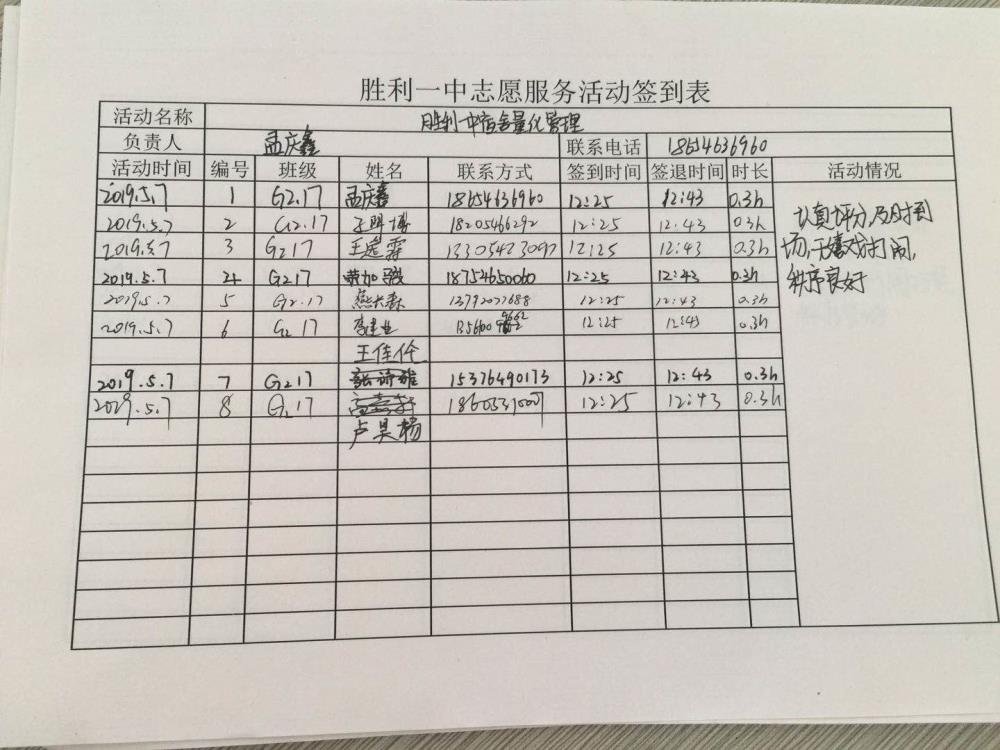 胜利一中志愿服务活动签到表
活动名称 胜利一中宿舍量化管理
负责人 孟庆鑫 联系电话 18654636960
活动时间 编号 班级 姓名 联系方式 签到时间 签退时间 时长 活动情况
2019.5.7 1 G2.17 孟庆鑫 18654636960 12:25 12:43 0.3h
2019.5.7 2 G2.17 18205466292 12:25 12.43 0.3h
2019.5.7 3 G217 王遥霖 12:25 12:43 0.3h
2019.5.7 4 G217 18754650060 12:25 12:43 0.3h
2019.5.7 5 G2.17 13792077688 12:25 12:43 0.3h
2019.5.7 6 G2 17 李建业 12:25 12:43 0.3h
王佳伦
2019.5.7 7 G217 15376490173 12:25 12:43 0.3h
2019.5.7 8 G217 12:25 12:43 0.3h
卢昊杨
认真评分,及时到
场,无嬉戏打闹,
秩序良好